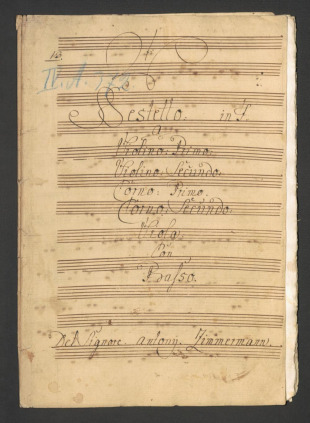 Sestetto. in F.
a
Violino: Primo.
Violino: Secundo.
Corno: Primo.
Corno: Secundo.
Viola
Con
Basso.
Del Signore Antony Zimmermann.